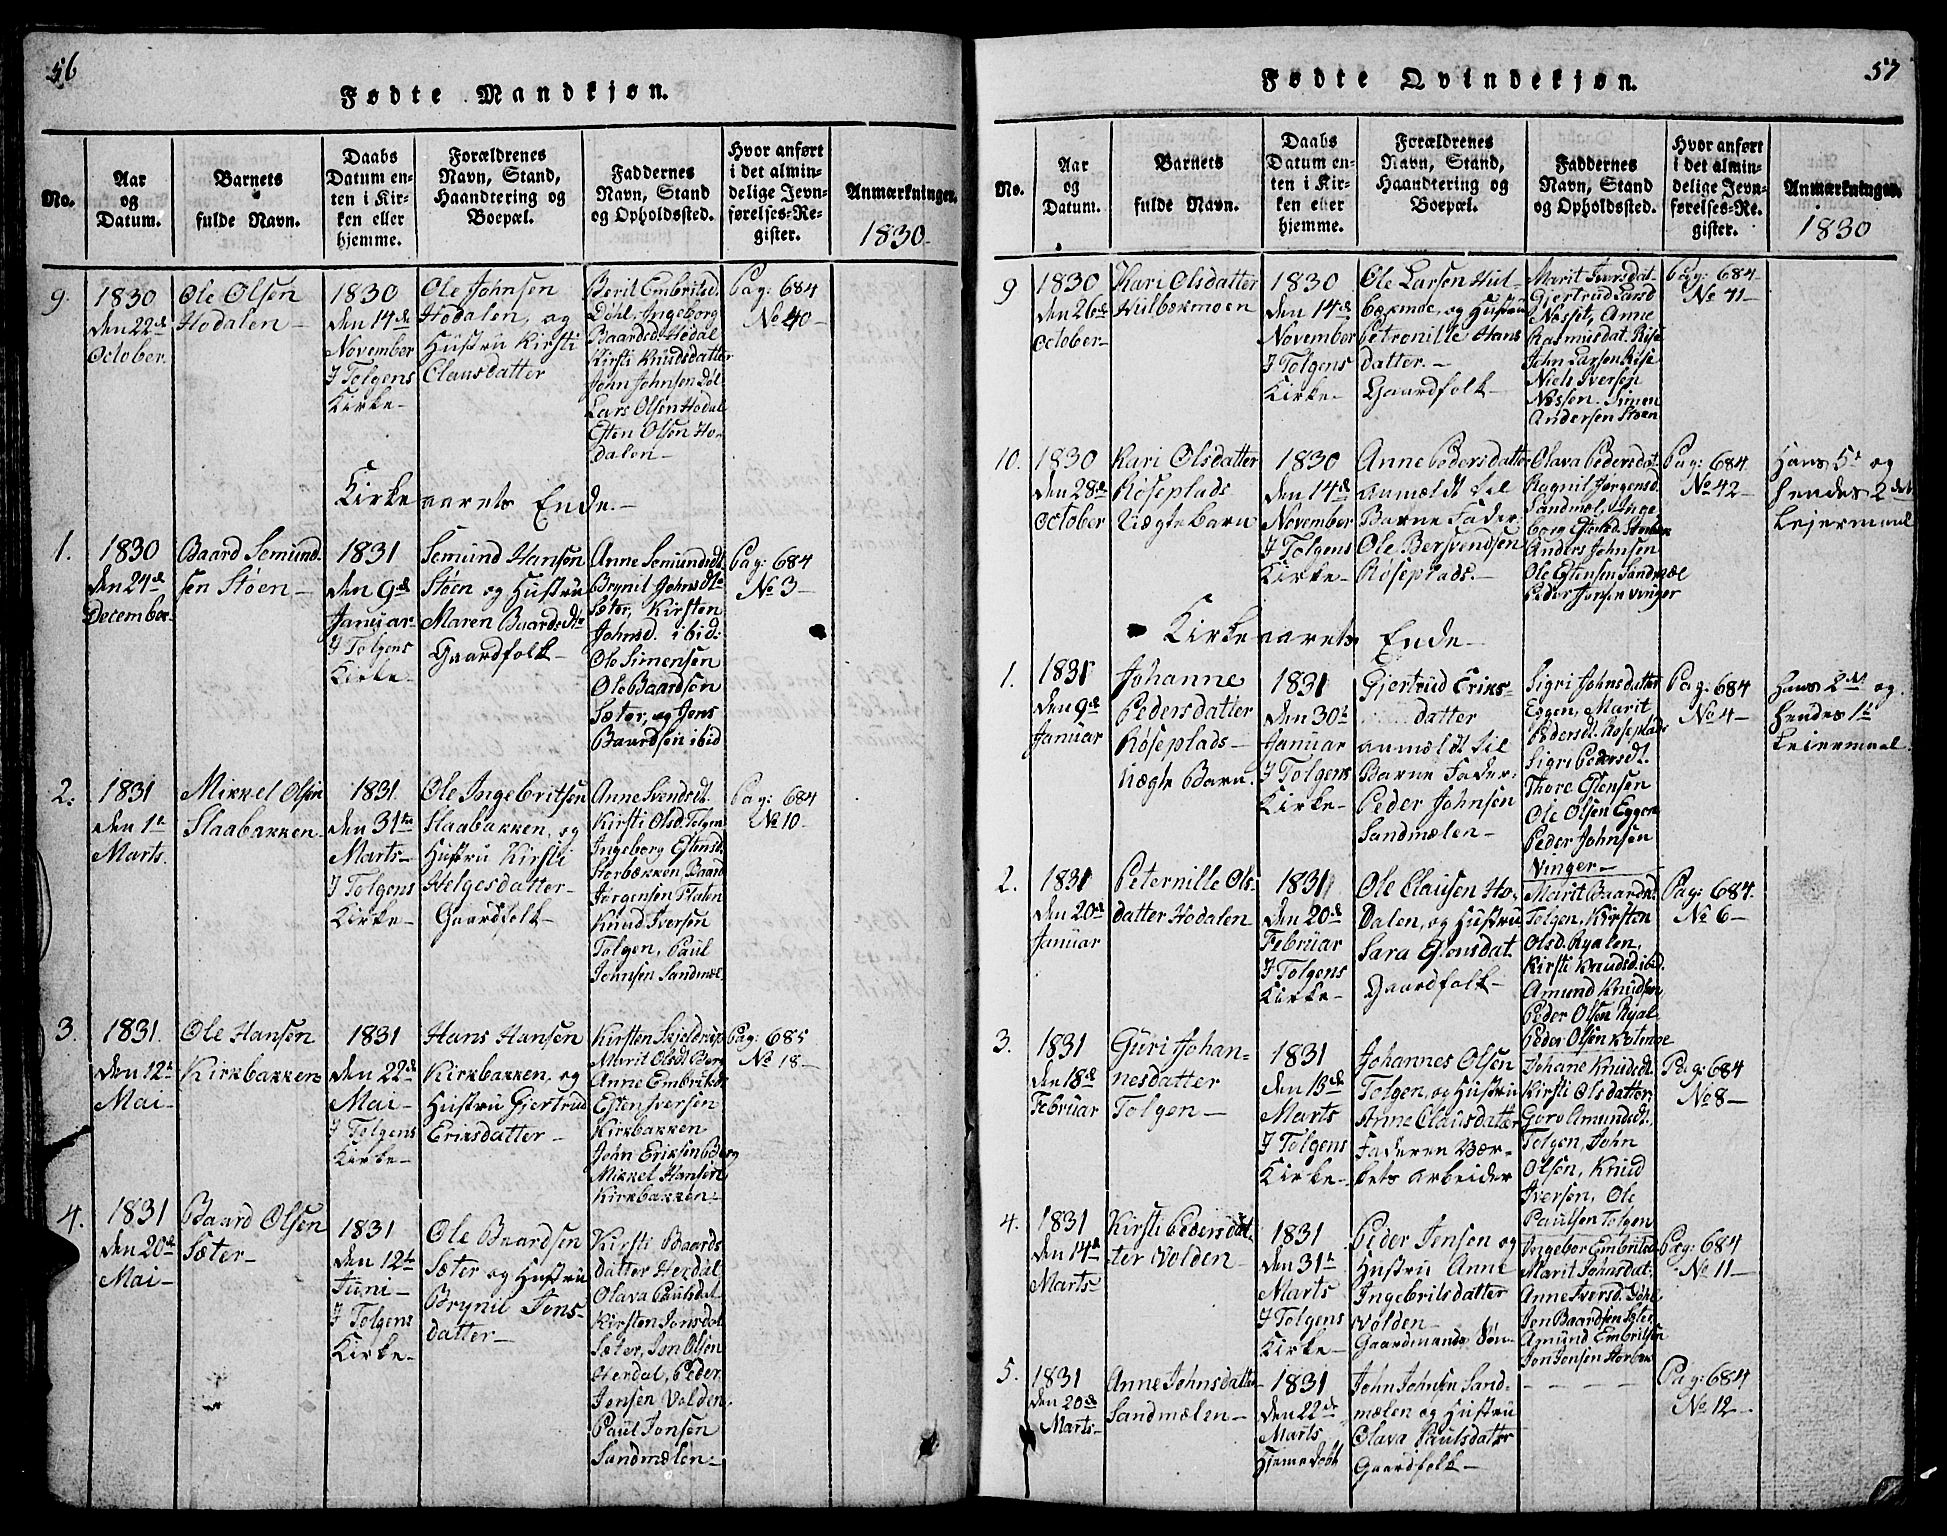 56
Fødte Mandkjøn.
No.
Aar
og
Datum.
Barnets
fulde Navn.
Daabs
Datum en-
ten i Kir-
ken eller
hjemme.
Forældrenes
Navn, Stand,
Haandtering og
Boepæl.
Faddernes
Navn, Stand
og Opholdssted.
Hvor anført
i det almin-
delige Jevn-
førelses-Re-
gister.
Anmærkninger.
1830
9.
1830
den 22de
October.
Ole Olsen
Hodalen
1830
den 14de
November
I Tolgens
Kirke
Ole Johnsen
Hodalen, og
Hustru Kirsti
Clausdatter
Berit Embritsd.
Døhl, Ingeborg
Baardsd. Hodal
Kirsti Knudsdatter
John Johnsen Døl
Lars Olsen Hodal
Esten Olsen Ho-
dalen
Pag: 684
No 40
Kirkeaarets Ende.
1.
1830
den 24de
December
Baard Semund-
sen Støen
1831
den 9de
Januar
I Tolgens
Kirke
Semund Hansen
Støen og Hustru
Maren Baardsdtr
Gaardfolk
Anne Semundsdt.
Brynil Johnsdtr
Sæter, Kirsten
Johnsd. ibid:
Ole Simensen
Ole Baardsen
Sæter, og Jens
Baardsen ibid
Pag: 684
No 3
2.
1831
den 1te
Marts.
Mikkel Olsen
Slaabakken
1831
den 31te
Marts
I Tolgens
Kirke
Ole Ingebritsen
Slaabakken, og
Hustru Kirsti
Helgesdatter
Gaardfolk
Anne Svendsdt.
Kirsti Olsd. Tolgen
Ingeborg Estensd.
Storbækken Baard
Jørgensen
Knud Iversen
Tolgen, Paul
Johnsen Sandmæl
Pag: 684
No 10
3.
1831.
den 12te
Mai
Ole Hansen
Kirkbakken
1831
den 22de
Mai
I Tolgens
Kirke
Hans Hansen
Kirkbakken, og
Hustru Gjertrud
Eriksdatter
Kirsten Skjeldrup
Marit Olsd. Berg
Anne Embriksd.
Esten Iversen
Kirkbakken
John Eriksen Berg
Mikkel Hansen
Kirkbakken
Pag: 685
No 18
4.
1831
den 20de
Mai
Baard Olsen
Sæter
1831
den 12te
Juni
I Tolgens
Kirke
Ole Baardsen
Sæter og Hustru
Brynil Jons-
datter
Kirsti Baards
datter Herdal
Olava Paulsdat.
Kirsten Jonsdat.
Sæter, Jon Olsen
Herdal, Peder
Jonsen Volden
Paul Jonsen
Sandmælen
57
Fødte Qvindekjøn.
No.
Aar
og
Datum.
Barnets
fulde Navn.
Daabs
Datum en-
ten i Kir-
ken eller
hjemme.
Forældrenes
Navn, Stand,
Haandtering og
Boepæl.
Faddernes
Navn, Stand
og Opholdssted.
Hvor anført
i det almin-
delige Jevn-
førelses-Re-
gister.
Anmærkninger.
1830
9
1830
den 26de
October
Kari Olsdatter
Hulbækmoen
1830
den 14de
November
I Tolgens
Kirke
Ole Larsen Hul-
bækmoe, og Hustru
Petronille Hans
datter.
Gaardfolk
Marit Iversdat
Gjertrud Larsd
Nesset, Anne
Rasmusdat. Rise
John Larsen Rise
Niels Iversen
Nessen. Simen
Andersen Støen
Pag: 684
No 41
10.
1830
den 28de
October
Kari Olsdatter
Røseplads
Uægte Barn
1830
den 14de
November
I Tolgens
Kirke
Anne Pedersdatter
anmældt til
Barne Fader
Ole Bersvendsen
Røseplads.
Olava Pedersdat.
Ragnil Jørgensd.
Sandmæl, Inge
borg Estensd.
Anders Johnsen
Ole Estensen Sandmæl
Peder Jonsen Vinger
Pag: 684
No 42
Hans 5te og
hendes 2det
Leiermaal
Kirkeaarets Ende
1.
1831
den 9de
Januar
Johanne
Pedersdatter
Røseplads
Uægte Barn.
1831
den 30te
Januar
I Tolgens
Kirke
Gjertrud Eriks-
datter
anmældt til
Barne Fader:
Peder Johnsen
Sandmælen
Sigri Johnsdatter
Eggen, Marit
Pedersdt. Røseplads
Sigri Pedersdt.
Thore Estensen
Ole Olsen Eggen
Peder Johnsen
Vinger
Pag: 684
No 4
Hans 2det og
Hendes 1te
Leiermaal.
2.
1831
den 20de
Januar
Peternille Ols-
datter Hodalen
1831
den 20de
Februar
I Tolgens
Kirke
Ole Clausen Ho-
dalen, og Hustru
Sara Estensdat.
Gaardfolk
Marit Baardsd.
Tolgen, Kirsten
Olsd. Ryalen,
Kirsti Knudsd. ibid.
Amund Knudsen
Peder Olsen Ryal
Peder Olsen
Pag: 684.
No 6
3.
1831
den 18de
Februar
Guri Johan-
nesdatter
Tolgen
1831
den 13de
Marts
I Tolgens
Kirke
Johannes Olsen
Tolgen, og Hustru
Anne Clausdatter
Faderen Vær-
kets arbeider
Johane Knudsdt.
Kirsti Olsdatter
Goro Amundsdt.
Tolgen, John
Olsen, Knud
Iversen, Ole
Paulsen Tolgen
Pag: 684
No 8
4.
1831
den 14de
Marts
Kirsti Pedersdat-
ter Volden
1831
den 31te
Marts
I Tolgens
Kirke
Peder Jensen og
Hustru Anne
Ingebritsdatter
Volden
Gaardmands Søn
Ingebor Embritsd.
Marit Johnsdat.
Anne Iversd. Døhl
Jon Baardsen Sæter
Amund Embritsen
Jon Jensen
Pag: 684
No 11
5.
1831
den 20de
Marts
Anne Johnsdatter
Sandmælen
1831
den 22de
Marts
Hjemedøbt
John Johnsen Sand-
mælen og Hustru
Olava Paulsdatter
Gaardfolk
Pag: 684
No 12